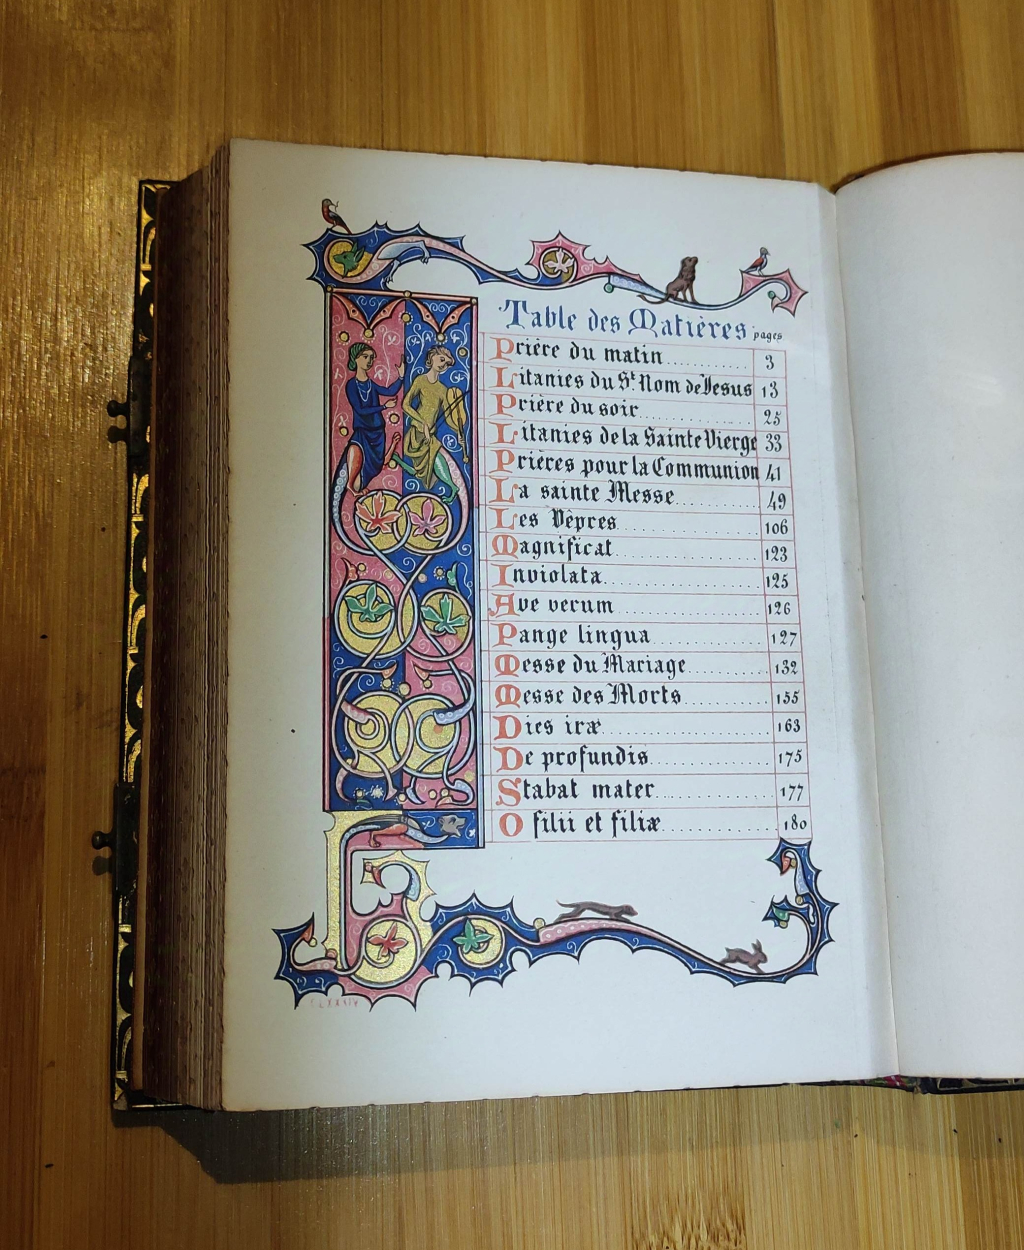 Table des Matières pages
Prière du matin 3
Litanies du St. Nom de Jesus 13
Prière du soir 25
Litanies de la Sainte Vierge 33
Prières pour la Communion 41
La sainte Messe 49
Les Vêpres 106
Magnificat 123
Inviolata 125
Ave verum 126
Pange lingua 127
Messe du Mariage 132
Messe des Morts 155
Dies iræ 163
De profundis 175
Stabat mater 177
O filii et filiæ 180